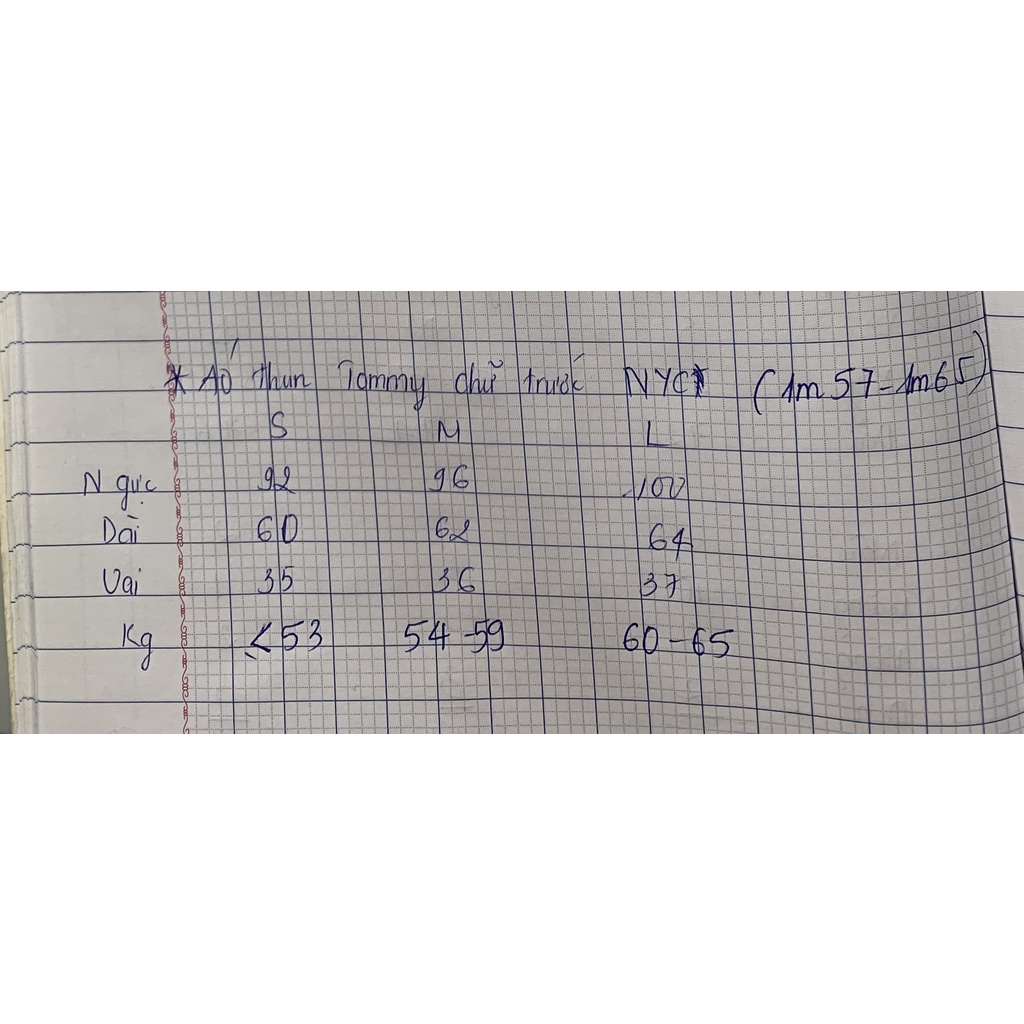 * Áo thun Tommy chữ trước NYC (1m57-1m65)
S M L
Ngực 92 96 100
Dài 60 62 64
Vai 35 36 37
Kg ≤53 54-59 60-65